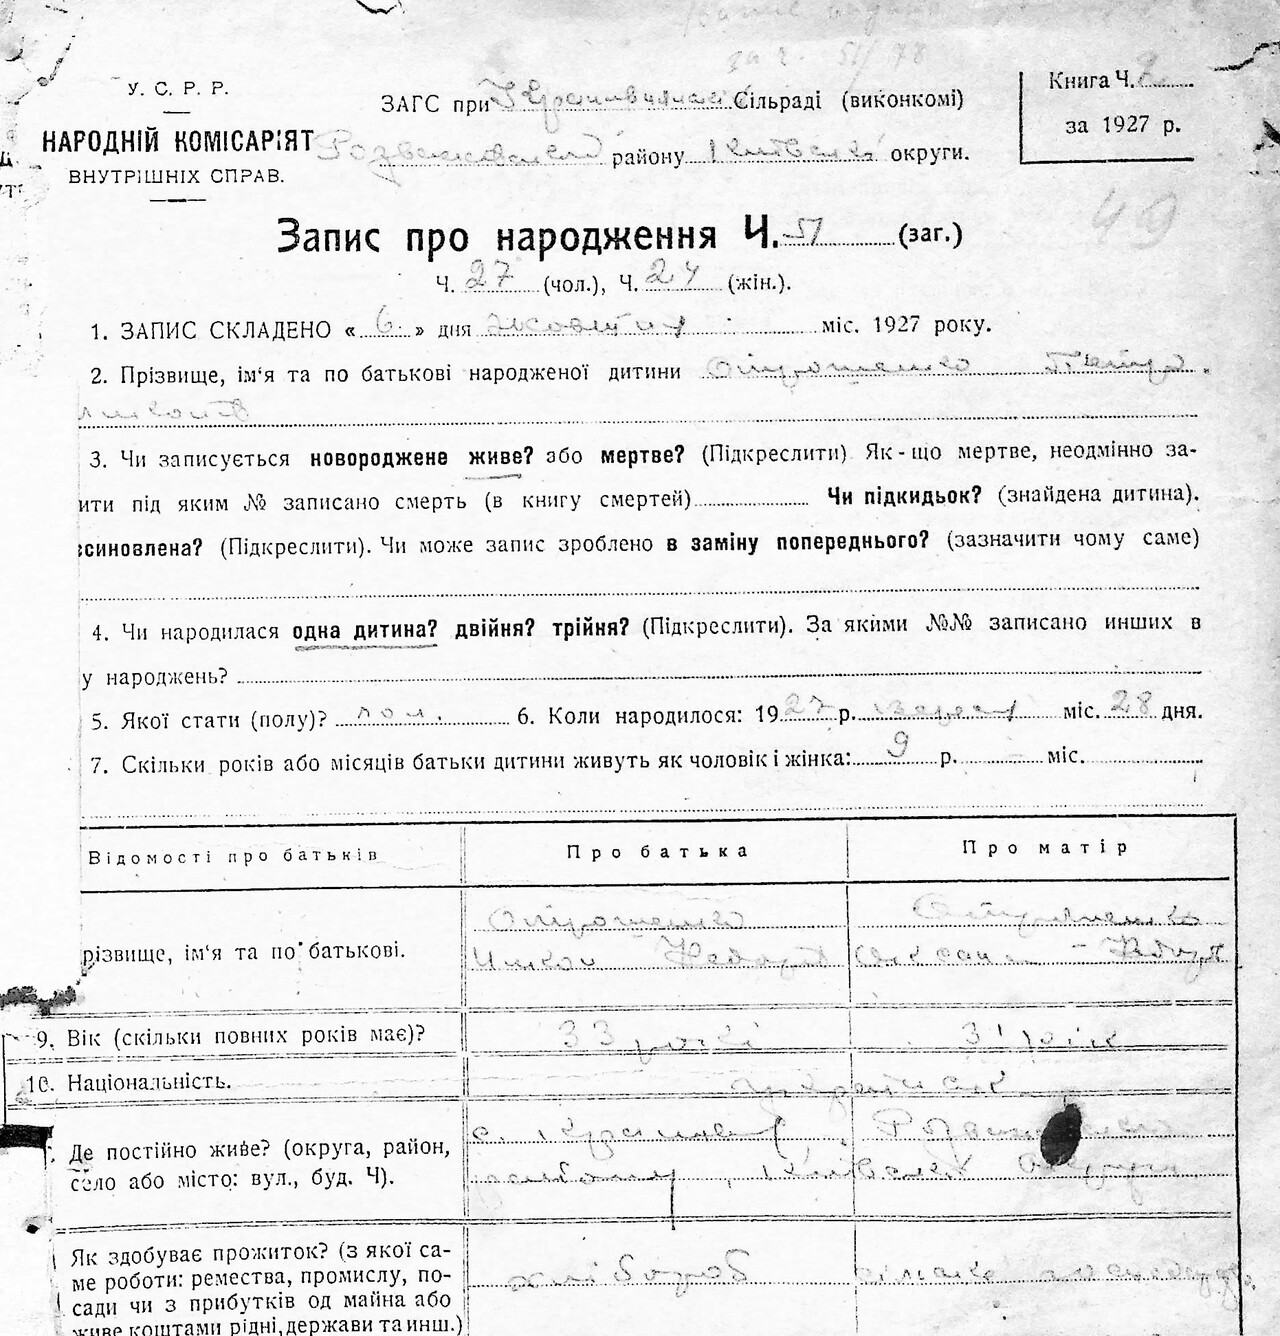 У. С. Р. Р.
НАРОДНІЙ КОМІСАРІЯТ
ВНУТРІШНІХ СПРАВ.
ЗАГС при Сільраді (виконкомі)
району округи.
Книга Ч.
за 1927 р.
49
Запис про народження Ч. 51 (заг.)
Ч. 27 (чол.), Ч. 24 (жін.).
1. ЗАПИС СКЛАДЕНО « 6 » дня жовтня міс. 1927 року.
2. Прізвище, ім'я та по батькові народженої дитини Отрошенко Петро
3. Чи записується новороджене живе? або мертве? (Підкреслити) Як-що мертве, неодмінно за-
ити під яким № записано смерть (в книгу смертей) Чи підкидьок? (знайдена дитина).
синовлена? (Підкреслити). Чи може запис зроблено в заміну попереднього? (зазначити чому саме)
4. Чи народилася одна дитина? двійня? трійня? (Підкреслити). За якими №№ записано инших в
у народжень?
5. Якої стати (полу)? чол. 6. Коли народилося: 1927 р. вересня міс. 28 дня.
7. Скільки років або місяців батьки дитини живуть як чоловік і жінка: 9 р. — міс.
Відомості про батьків Про батька Про матір
Отрошенко Отрошенко
різвище, ім'я та по батькові.
9. Вік (скільки повних років має)? 33 роки 31 рік
10. Національність. українськ
Де постійно живе? (округа, район,
село або місто: вул., буд. Ч).
району, Київськ округи
Як здобуває прожиток? (з якої са-
ме роботи: ремества, промислу, по-
сади чи з прибутків од майна або
живе коштами рідні, держави та инш.)
хлібороб